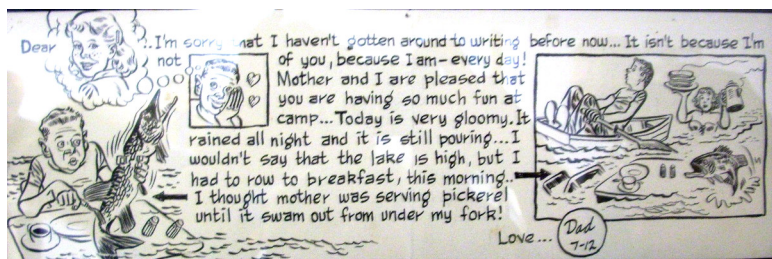 Dear !. I'm sorry that I haven't gotten around to writing before now... It isn't because I'm
not of you, because I am - every day!
Mother and I are pleased that
you are having so much fun at
camp... Today is very gloomy. It
rained all night and it is still pouring... I
wouldn't say that the lake is high, but I
had to row to breakfast, this morning..
I thought mother was serving pickerel
until it swam out from under my fork!
Love... Dad
7-12